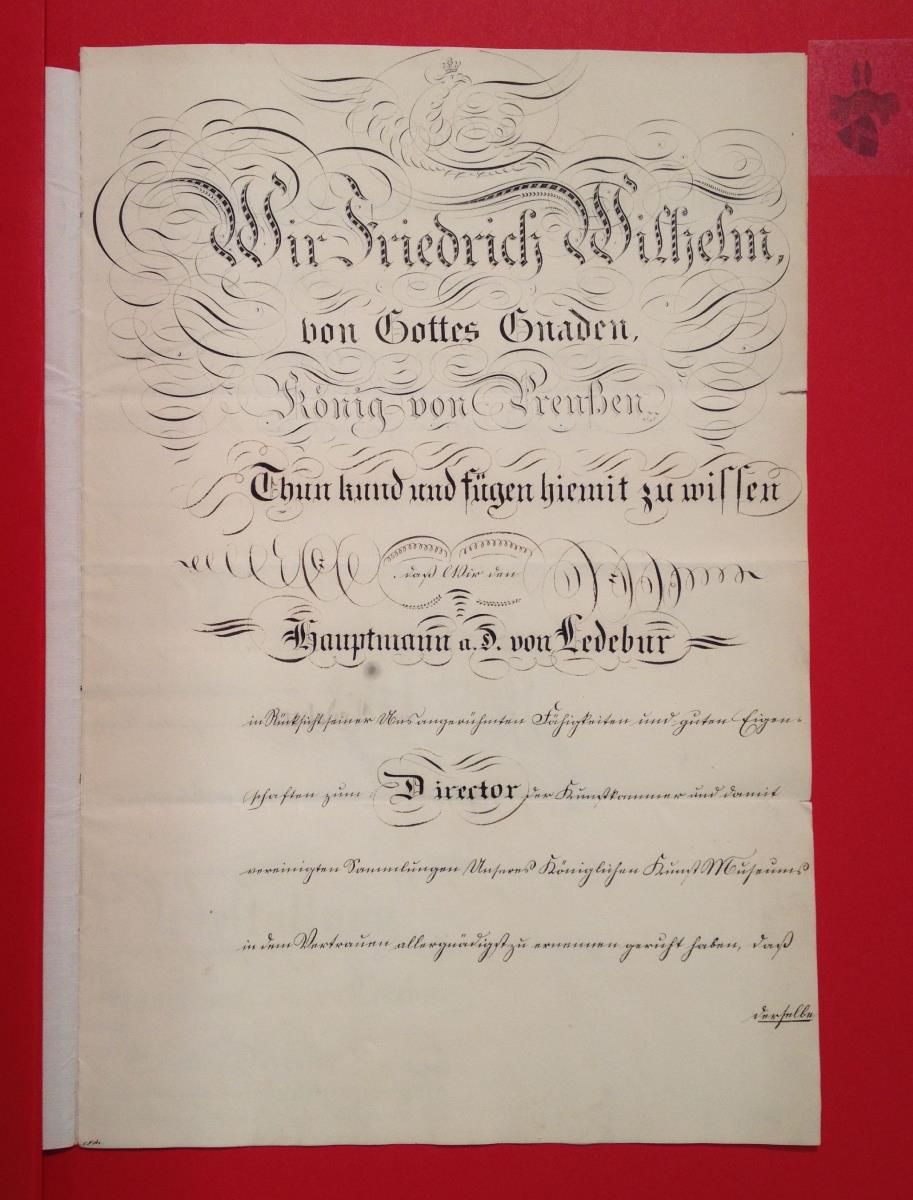 Wir Friedrich Wilhelm,
von Gottes Gnaden,
König von Preußen
Thun kund und fügen hiemit zu wissen
daß Wir den
Hauptmann a. D. von Ledebur
in Rücksicht seiner Uns angerühmten Fähigkeiten und guten Eigen-
schaften zum Director der Kunstkammer und damit
vereinigten Sammlungen Unseres Königlichen Kunst Museums
in dem Vertrauen allergnädigst zu ernennen geruht haben, daß
derselbe